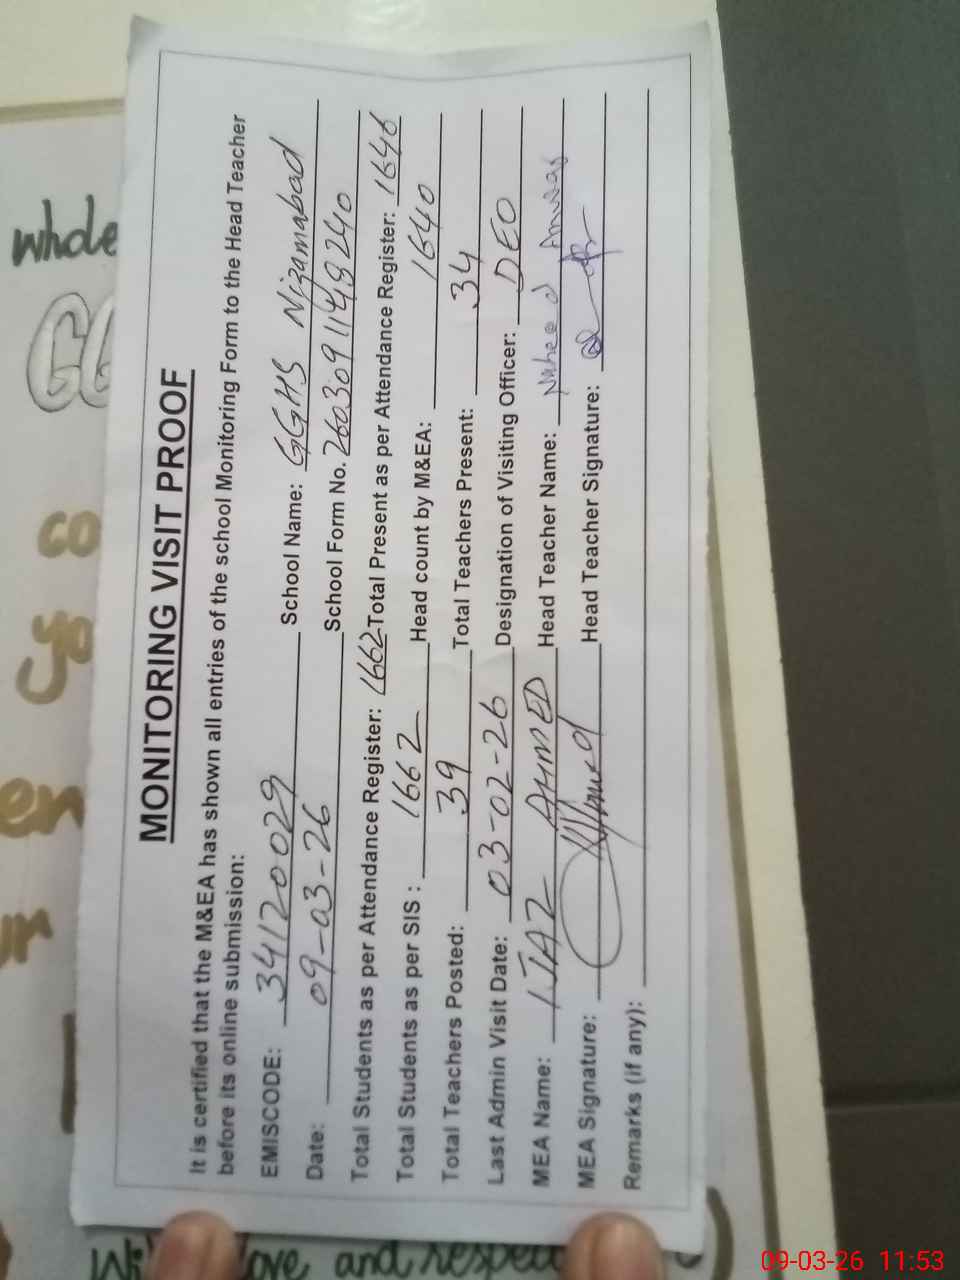 MONITORING VISIT PROOF
It is certified that the M&EA has shown all entries of the school Monitoring Form to the Head Teacher
before its online submission:
EMISCODE: 34120029 School Name: GGHS Nizamabad
Date: 09-03-26 School Form No. 2603091148240
Total Students as per Attendance Register: 1662 Total Present as per Attendance Register: 1646
Total Students as per SIS : 1662 Head count by M&EA: 1640
Total Teachers Posted: 39 Total Teachers Present: 34
Last Admin Visit Date: 03-02-26 Designation of Visiting Officer: DEO
MEA Name: IJAZ AHMED Head Teacher Name: Naheed Anwar
MEA Signature: Head Teacher Signature:
Remarks (if any):
whole
GG
co
yo
en
ur
love and respec
09-03-26 11:53